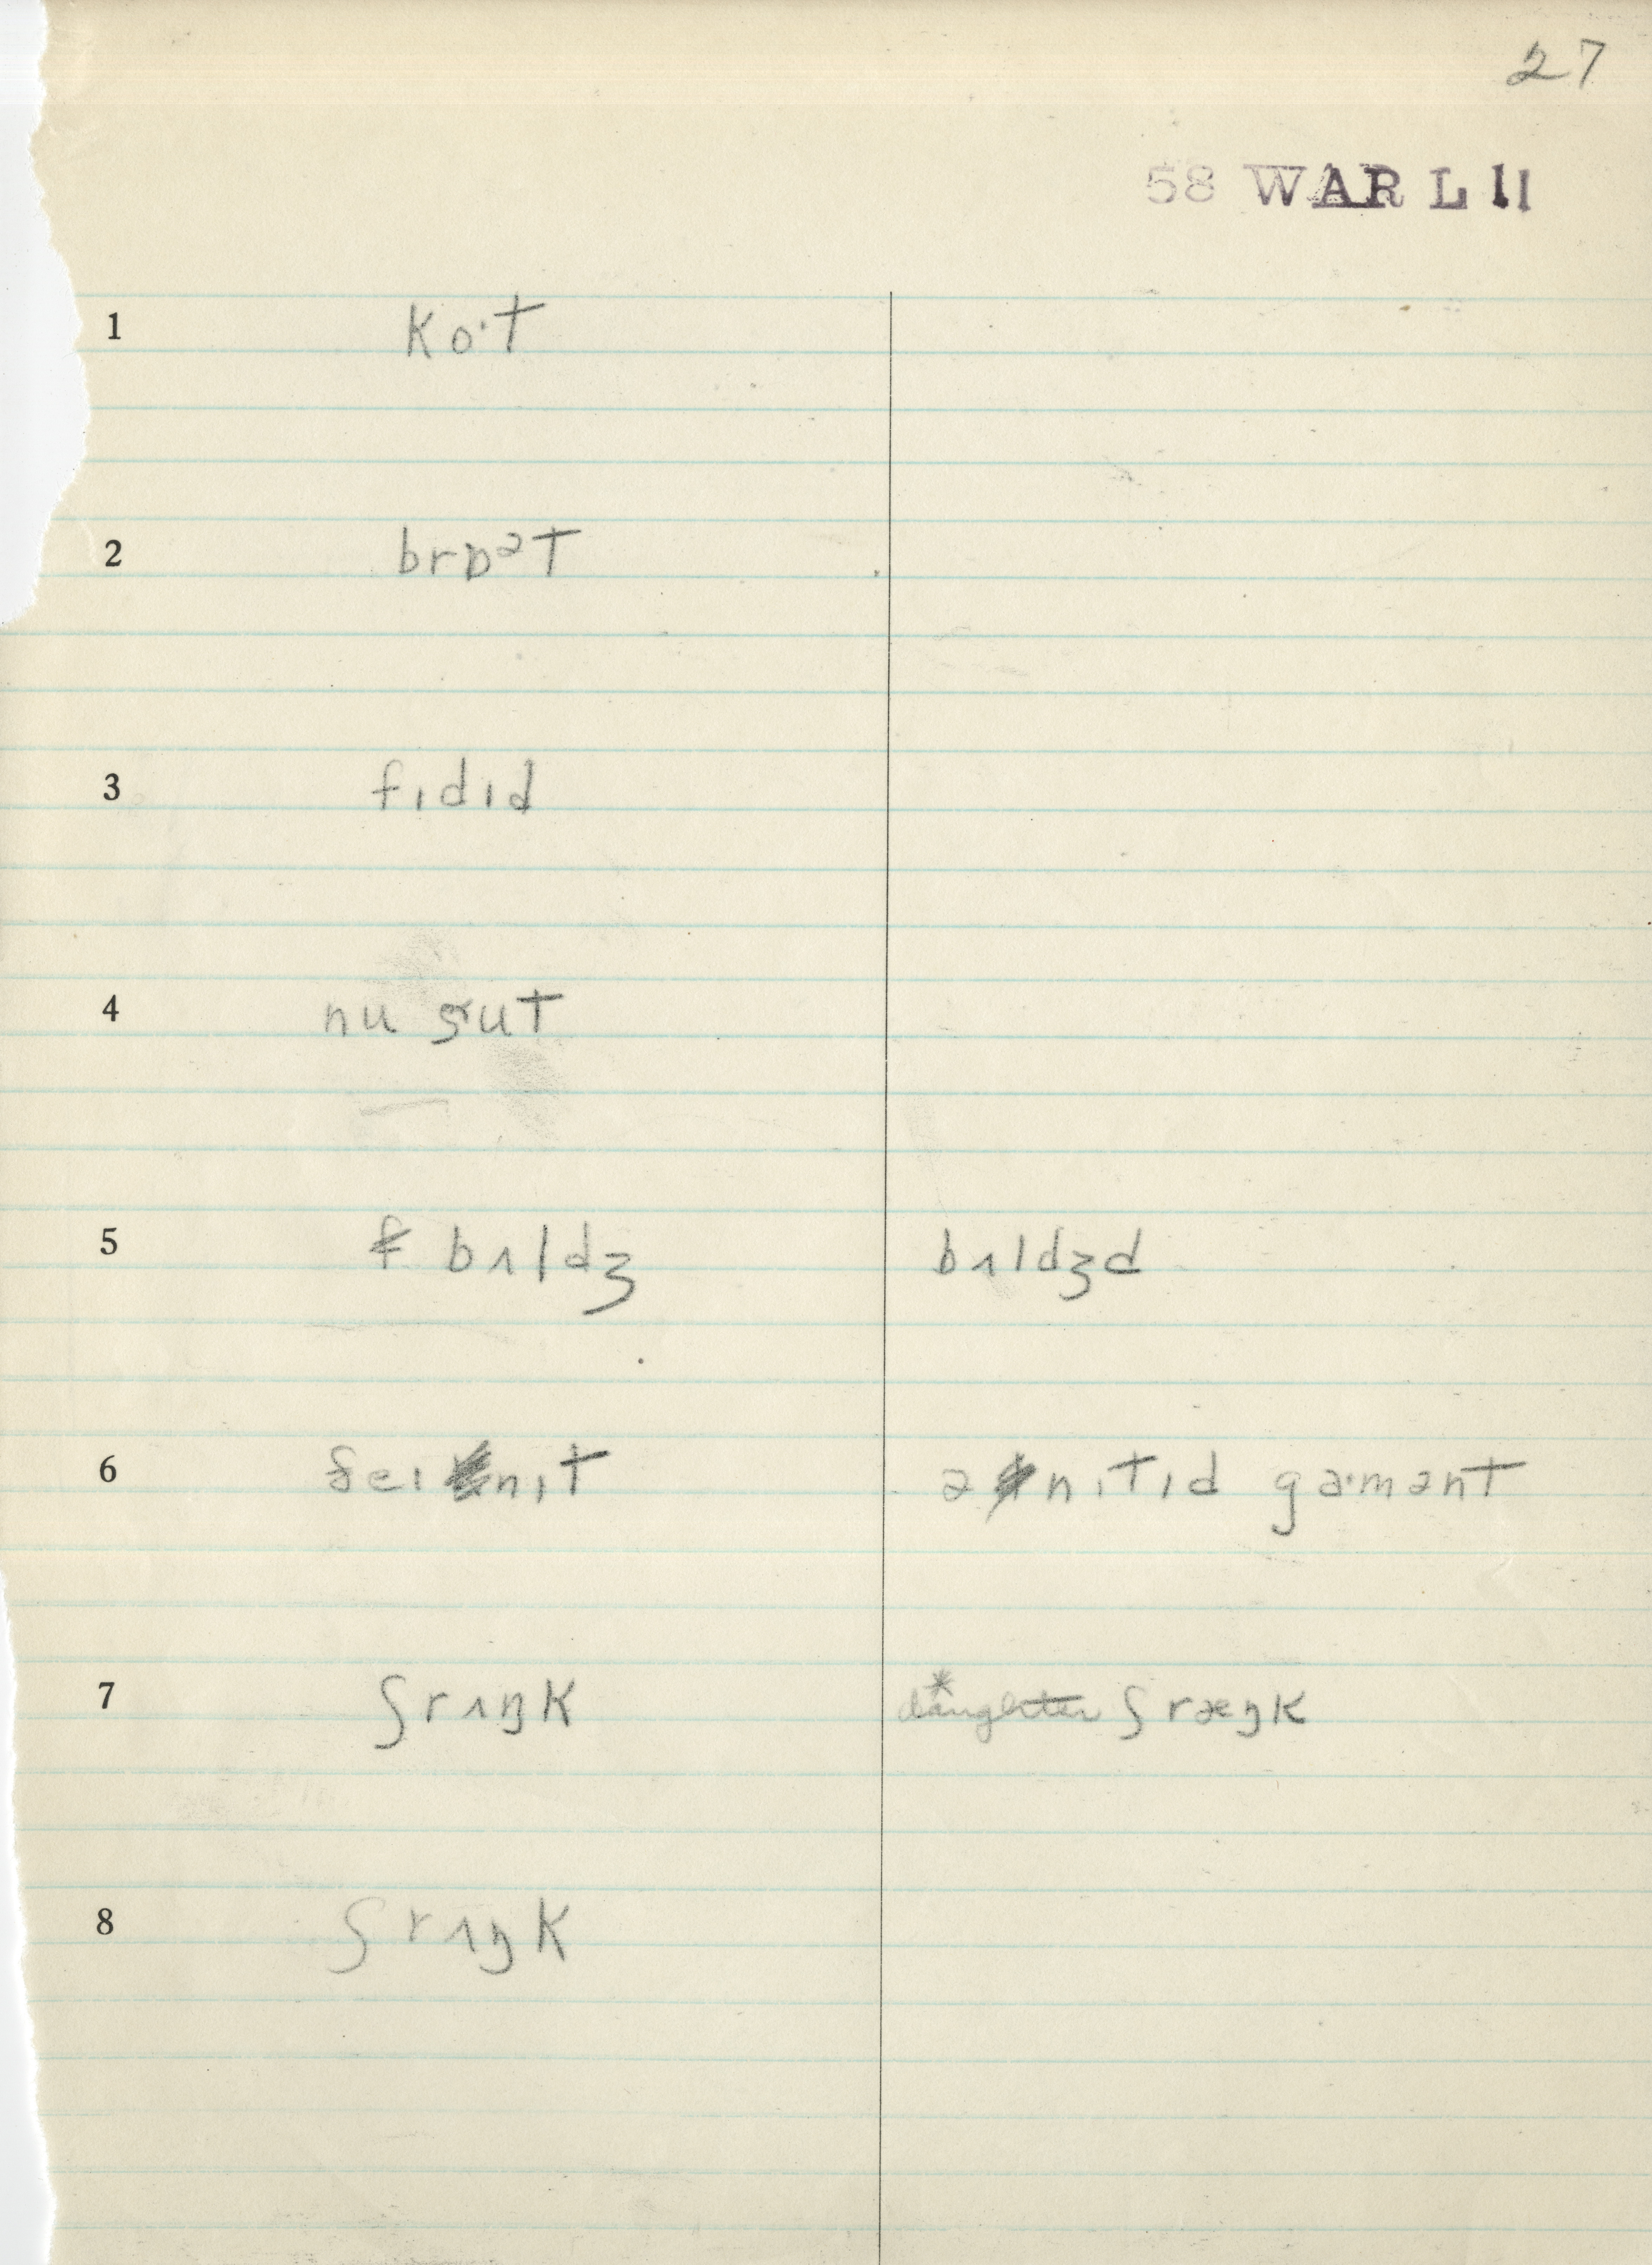 27
58 WAR L 11
1 ko·t
2 brɒᵊt
3 fɪdɪd
4 nu sut
5 bʌldʒ bʌldʒd
6 ðeɪ nɪt ə nɪtɪd ga·mənt
7 ʃrʌŋk *daughter ʃræŋk
8 ʃrʌŋk